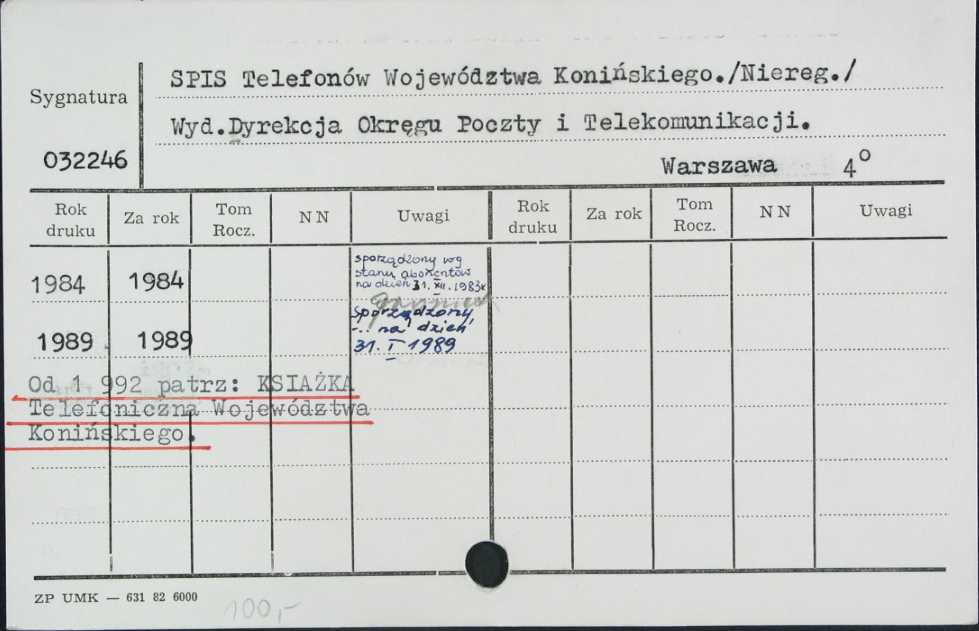 SPIS Telefonów Województwa Konińskiego./Niereg./
Sygnatura
Wyd.Dyrekcja Okręgu Poczty i Telekomunikacji.
032246
Warszawa 4°
Rok druku Za rok Tom Rocz. NN Uwagi Rok druku Za rok Tom Rocz. NN Uwagi
1984 1984 sporządzony wg
stanu abonentów
na dzień 31. XII. 1983r
1989 1989 Sporządzony,
-.. na dzień
31. I 1989
Od 1 992 patrz: KSIAŻKA
Telefoniczna Województwa
Konińskiego.
ZP UMK — 631 82 6000
100,-